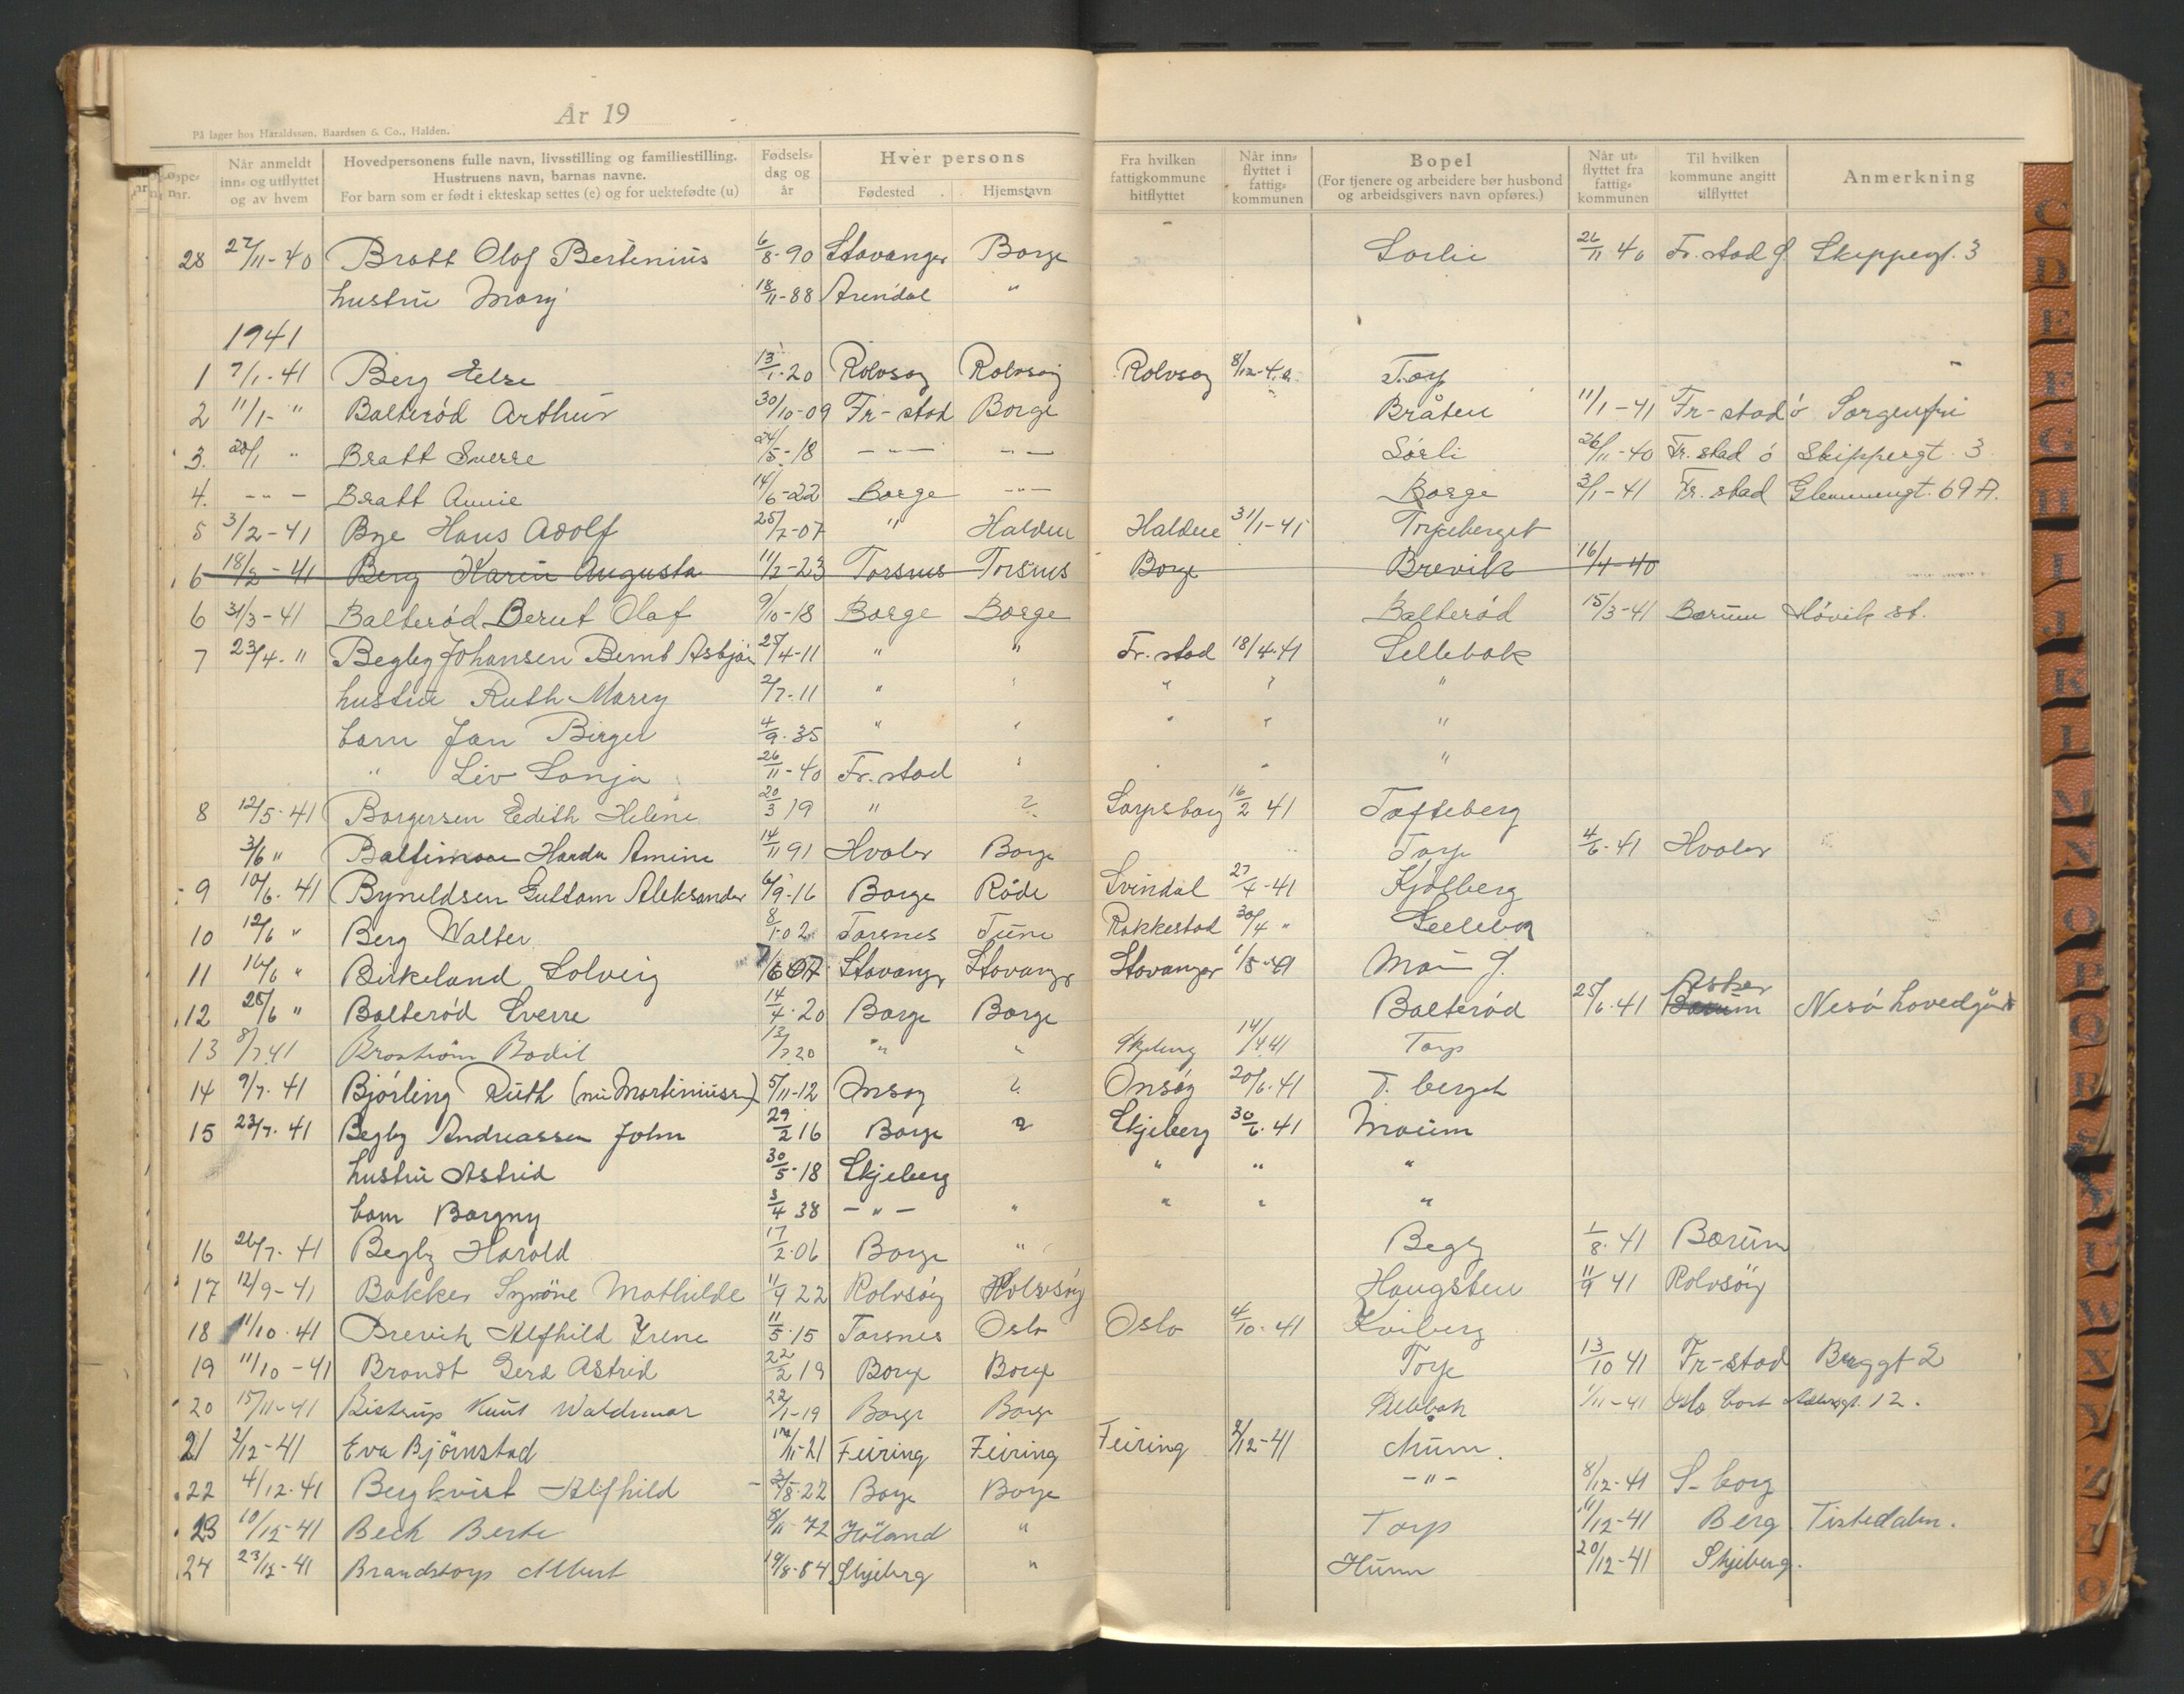 År 19
På lager hos Haraldssøn, Baardsen & Co., Halden.
Løpe- nr. | Når anmeldt inn- og utflyttet og av hvem | Hovedpersonens fulle navn, livsstilling og familiestilling. Hustruens navn, barnas navne. For barn som er født i ekteskap settes (e) og for uektefødte (u) | Fødsels- dag og år | Hver persons Fødested | Hjemstavn | Fra hvilken fattigkommune hitflyttet | Når inn- flyttet i fattig- kommunen | Bopel (For tjenere og arbeidere bør husbond og arbeidsgivers navn opføres.) | Når ut- flyttet fra fattig- kommunen | Til hvilken kommune angitt tilflyttet | Anmerkning
28 27/11-40 Bratt Olaf Bertinius 6/8-90 Stavanger Borge Sorli 26/11 40 Fr.stad Ø Skippergt. 3
hustru Mary 18/11-88 Arendal "
1941
1 7/1-41 Berg Else 13/1-20 Rolvsøy Rolvsøy Rolvsøy 8/12-40 Torp
2 11/1- " Balterød Arthur 30/10-09 Fr-stad Borge Bråten 11/1-41 Fr-stad ø Sorgenfri
3. 20/1 " Bratt Sverre 24/5-18 -"- -"- Sørli 26/11-40 Fr.stad ø Skippergt. 3
4. -"- Bratt Annie 14/6-22 Borge -"- Borge 3/1-41 Fr.stad Glemmengt. 69 A.
5 3/2-41 Bye Hans Adolf 25/7-07 " Halden Halden 31/1-41 Torpeberget
6 18/2-41 Berg Karin Augusta 11/2-23 Torsnes Torsnes Borge Brevik 16/4-40
6 31/3-41 Balterød Bernt Olaf 9/10-18 Borge Borge Balterød 15/3-41 Bærum Høvik st.
7 23/4-" Begby Johansen Bernt Asbjørn 25/4-11 " " Fr.stad 18/4-41 Sellebak
hustru Ruth Marry 2/7-11 " " " " "
barn Jan Birger 4/9-35 " " " " "
" Liv Sonja 26/11-40 Fr.stad " " " "
8 12/5-41 Borgersen Edith Helene 20/3 19 " ? Sarpsborg 16/2 41 Tofteberg
3/6 " Baltimore Harda Amine 14/11 91 Hvaler Borge Torp 4/6-41 Hvaler
9 10/6-41 Byneldsen Guttorm Aleksander 6/9-16 Borge Råde Svindal 27/4-41 Kjølberg
10 12/6 " Berg Walter 8/1-02 Torsnes Tune Rakkestad 30/4 "
11 16/6 " Birkeland Solveig Stavanger Stavanger Stavanger 1/5-41
12 25/6 " Balterød Sverre 14/4-20 Borge Borge Balterød 25/6-41 Bærum Asker Nesø hovedgård
13 8/7 41 Broström Bodil 13/7 20 " " Skjeberg Torp
14 9/7-41 Bjørling Ruth 5/11-12 Onsøy ? Onsøy 20/6-41 T. berget
15 23/7-41 Begby Andreassen John 29/2 16 Borge ? Skjeberg 30/6-41 Moum
hustru Astrid 30/5-18 Skjeberg " " "
barn Borgny 3/4 38 -"- " " " "
16 26/7-41 Begby Harald 17/2-06 Borge " Begby 1/8-41 Bærum
17 12/9-41 Bakker Synnöve Mathilde 11/9 22 Rolvsøy Rolvsöy Haugsten 11/9 41 Rolvsöy
18 11/10-41 Brevik Alfhild Irene 11/5-15 Torsnes Oslo Oslo 4/10-41 Kviberg
19 11/10-41 Brandt Gerd Astrid 22/2 19 Borge Borge Torp 13/10 41 Fr-stad Bryggt 2
20 15/11-41 Bistrup Knut Waldemar 22/1-19 Borge Borge Sellebak 1/11-41 Oslo
21 2/12-41 Eva Bjørnstad Feiring Feiring Feiring 2/12-41 Mum.
22 4/12-41 Bergkvist Alfhild 3/8-22 Borge Borge -"- 8/12-41 S-borg
23 10/12-41 Bech Berte 8/11-72 Höland " Torp 11/12-41 Berg Tistedaln.
24 23/12-41 Brandstorp Albert 19/8-84 Skjeberg " Hunn 20/12-41 Skjeberg.